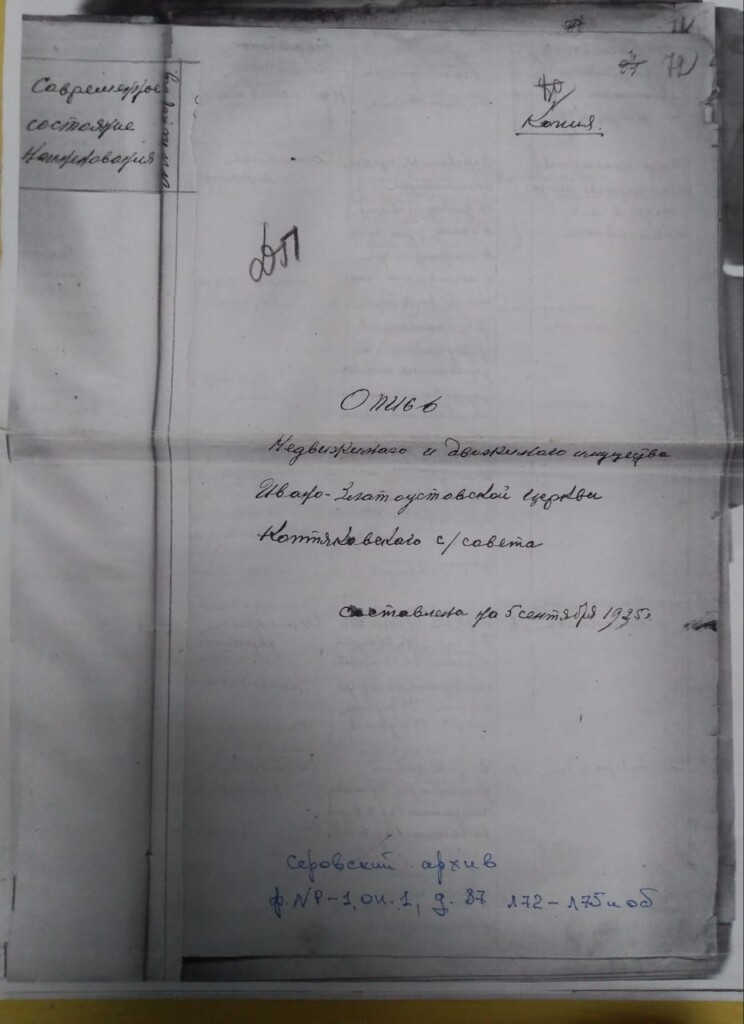 Современное
состояние
Копия.
ДП
Опись
Недвижимаго и движимаго имущества
Ивано-Златоустовской церкви
Коптяковского с/совета
составлена на 5 сентября 1935г.
Серовский архив
ф. №Р-1, оп. 1, д. 87 172-175 и об